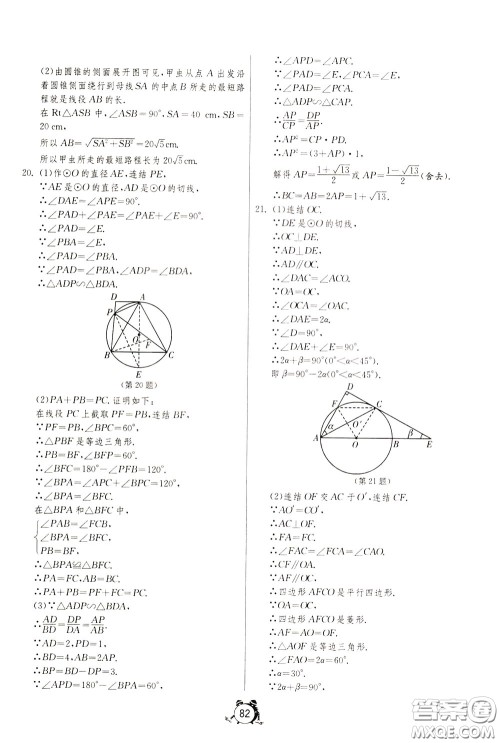 (2)由圆锥的侧面展开图可见,甲虫从点 A 出发沿
着圆锥侧面绕行到母线 SA 的中点 B 所走的最短路
程就是线段 AB 的长.
在 Rt△ASB 中,∠ASB=90°,SA=40 cm,SB=
20 cm,
所以 AB=√(SA²+SB²)=20√5 cm.
所以甲虫所走的最短路程长为 20√5 cm.
20. (1)作⊙O 的直径 AE,连结 PE,
∵AE 是⊙O 的直径,AD 是⊙O 的切线,
∴∠DAE=∠APE=90°.
∴∠PAD+∠PAE=∠PAE+∠E=90°.
∴∠PAD=∠E.
∵∠PBA=∠E,
∴∠PAD=∠PBA.
∵∠PAD=∠PBA,∠ADP=∠BDA,
∴△ADP∽△BDA.
D A
P
O F
B C
E
(第 20 题)
(2)PA+PB=PC. 证明如下:
在线段 PC 上截取 PF=PB,连结 BF.
∵PF=PB,∠BPC=60°,
∴△PBF 是等边三角形.
∴∠BFC=180°-∠PFB=120°.
∵∠BPA=∠APC+∠BPC=120°,
∴∠BPA=∠BFC.
在△BPA 和△BFC 中,
∠PAB=∠FCB,
∠BPA=∠BFC,
PB=BF,
∴△BPA≌△BFC.
∴PA=FC,AB=BC.
∴PA+PB=PF+FC=PC.
(3)∵△ADP∽△BDA,
∴AD/BD=DP/DA=PA/AB.
∵AD=2,PD=1,
∴BD=4,AB=2AP.
∴BP=BD-DP=3.
∵∠APD=180°-∠BPA=60°,
∴∠APD=∠APC.
∵∠PAD=∠E,∠PCA=∠E,
∴∠PAD=∠PCA.
∴△ADP∽△CAP.
∴AP/CP=DP/AP.
∴AP²=CP·PD.
∴AP²=(3+AP)·1,
解得 AP=(1+√13)/2 或 AP=(1-√13)/2(舍去).
∴BC=AB=2AP=1+√13.
21. (1)连结 OC.
∵DE 是⊙O 的切线,
∴OC⊥DE.
∵AD⊥DE,
∴AD∥OC.
∴∠DAC=∠ACO.
∵OA=OC,
∴∠OCA=∠OAC.
∴∠DAE=2α.
∵∠D=90°,
∴∠DAE+∠E=90°.
∴2α+β=90°(0°<α<45°).
即 β=90°-2α(0°<α<45°).
D
F C
O′
α β
A O B E
(第 21 题)
(2)连结 OF 交 AC 于 O′,连结 CF.
∵AO′=CO′,
∴AC⊥OF.
∴FA=FC.
∴∠FAC=∠FCA=∠CAO.
∴CF∥OA.
∵AF∥OC,
∴四边形 AFCO 是平行四边形.
∵OA=OC,
∴四边形 AFCO 是菱形.
∴AF=AO=OF.
∴∠FAO=60°.
∴∠FAO=2α=60°.
∴α=30°.
∵2α+β=90°,
82